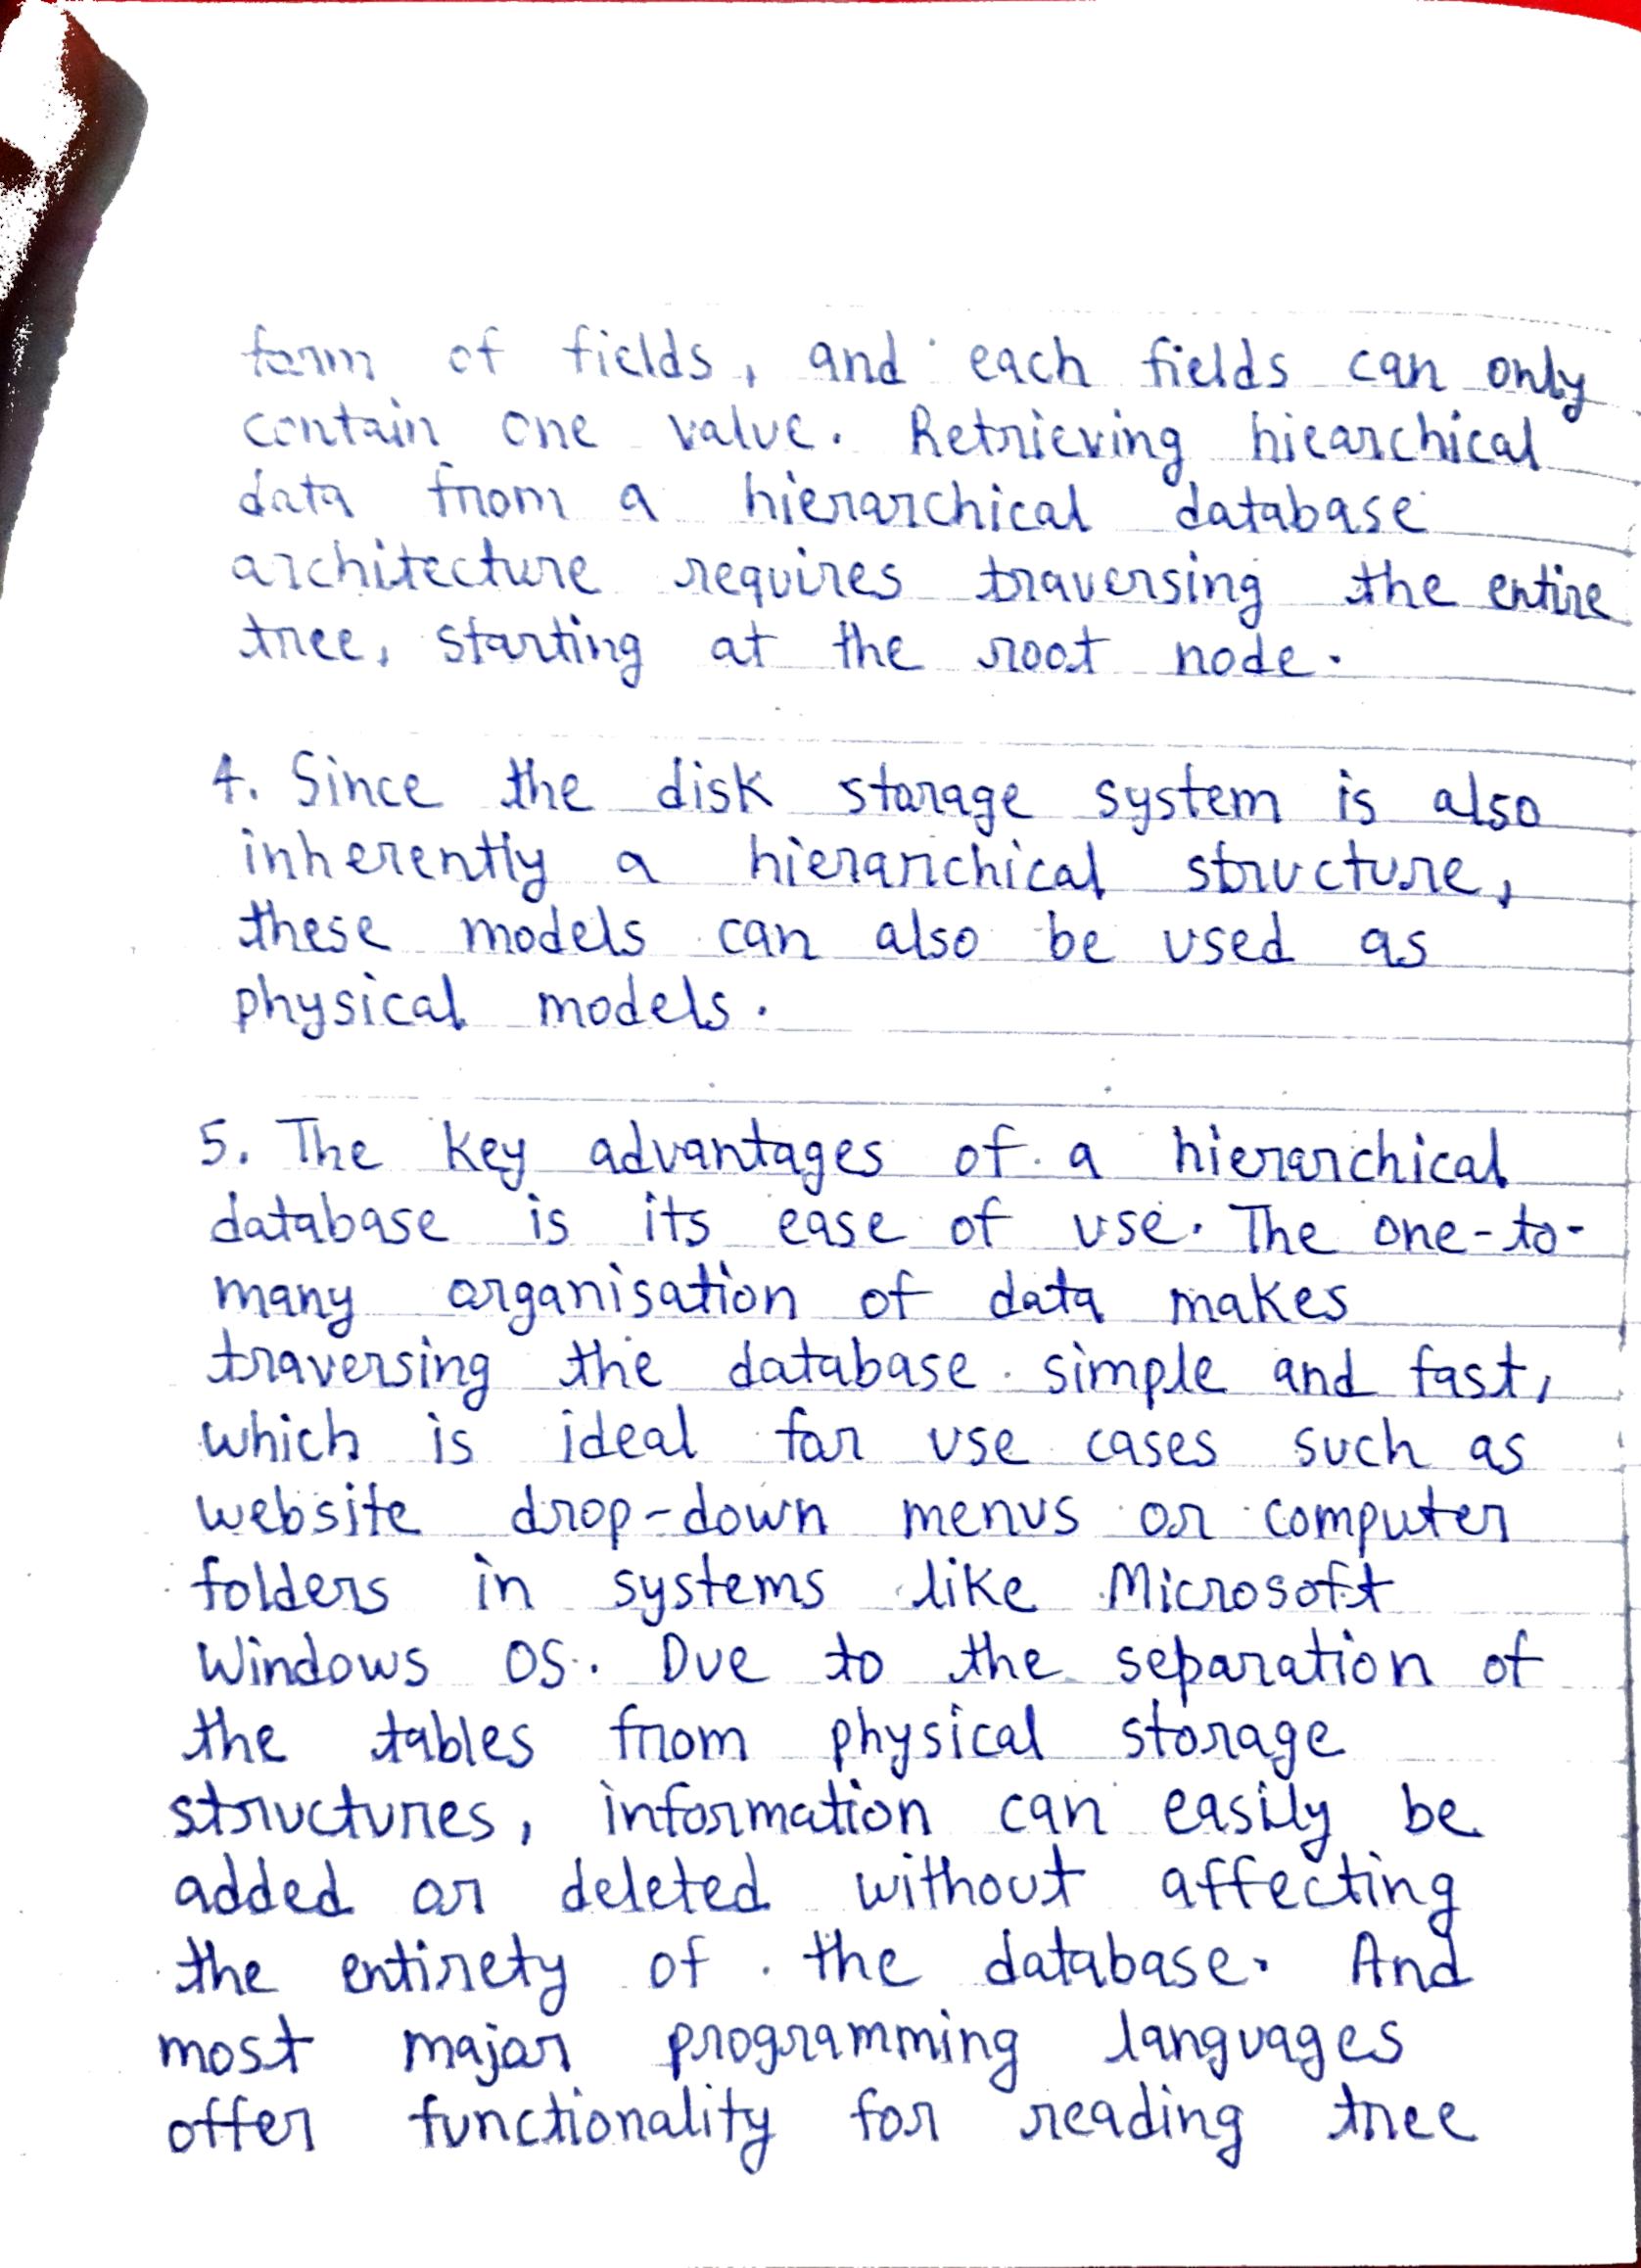 form of fields, and each fields can only
contain one value. Retrieving hiearchical
data from a hierarchical database
architecture requires traversing the entire
tree, starting at the root node.
4. Since the disk storage system is also
inherently a hierarchical structure,
these models can also be used as
physical models.
5. The key advantages of a hierarchical
database is its ease of use. The one-to-
many organisation of data makes
traversing the database simple and fast,
which is ideal for use cases such as
website drop-down menus or computer
folders in systems like Microsoft
Windows OS. Due to the separation of
the tables from physical storage
structures, information can easily be
added or deleted without affecting
the entirety of the database. And
most major programming languages
offer functionality for reading tree